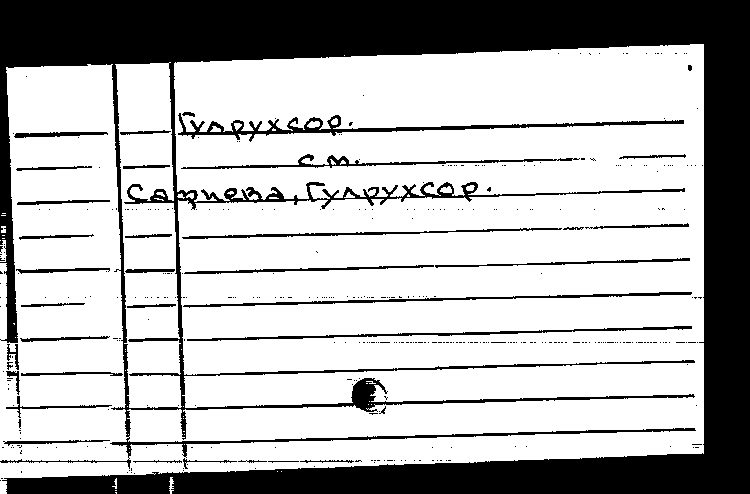 Гулрухсор.
см.
Сафиева, Гулрухсор.